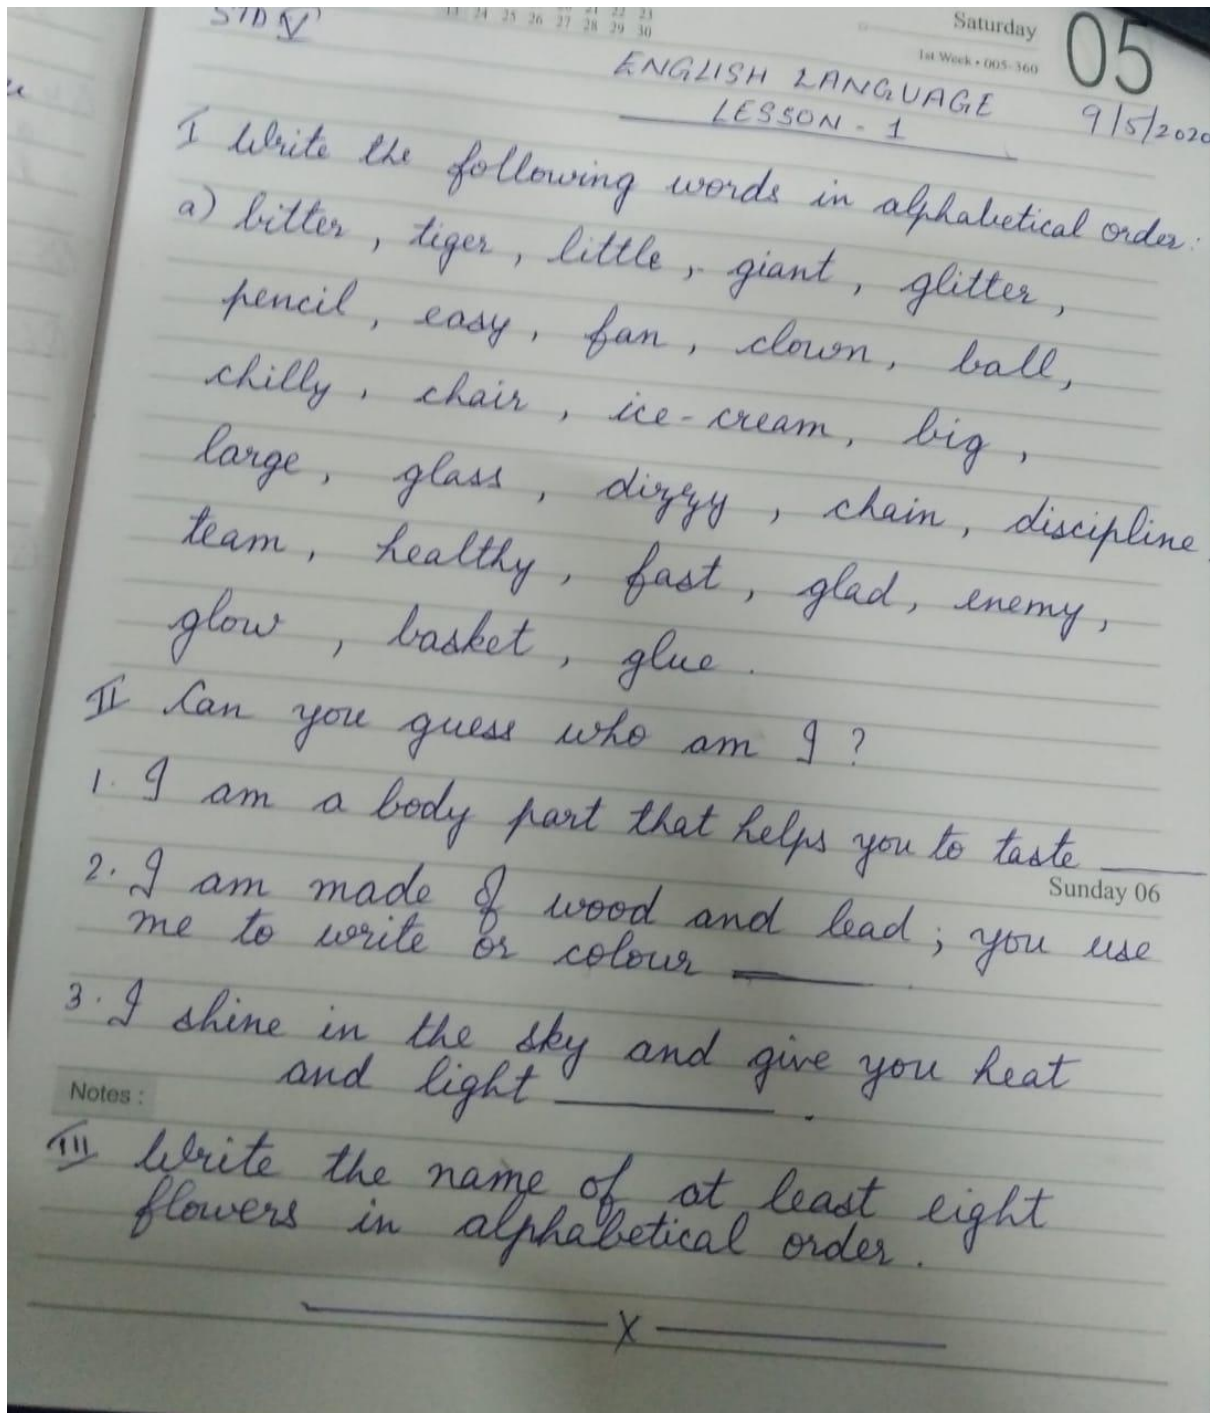 STD V
13 24 25 26 27 28 29 30
21 22 23
Saturday 05
1st Week • 005-360
ENGLISH LANGUAGE 9/5/2020
LESSON - 1
I Write the following words in alphabetical order:
a) bitter, tiger, little, giant, glitter,
pencil, easy, fan, clown, ball,
chilly, chair, ice-cream, big,
large, glass, dizzy, chain, discipline
team, healthy, fast, glad, enemy,
glow, basket, glue.
II Can you guess who am I?
1. I am a body part that helps you to taste ____
Sunday 06
2. I am made of wood and lead; you use
me to write or colour ____.
3. I shine in the sky and give you heat
and light ____.
Notes :
III Write the name of at least eight
flowers in alphabetical order.
X